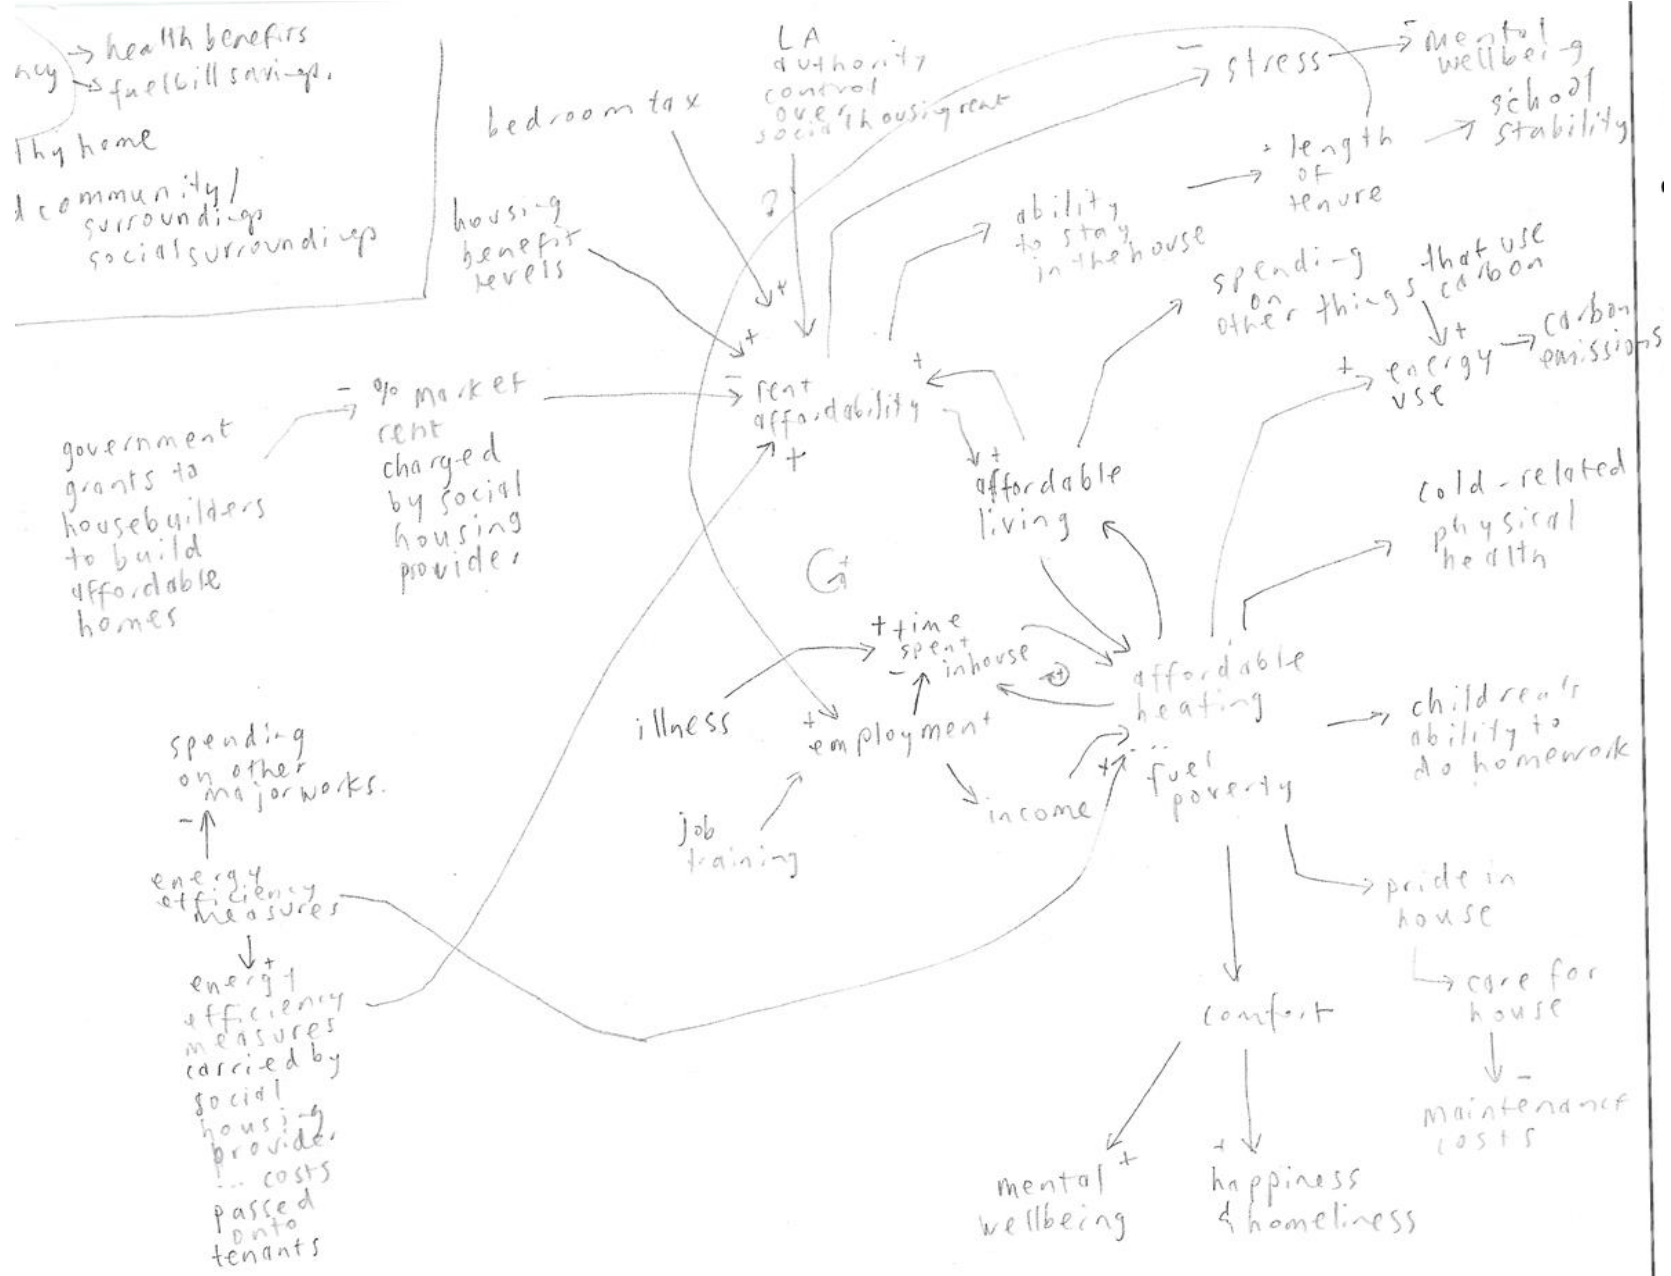 → health benefits
ncy → fuel bill savings.
thy home
d community/
surroundings
social surroundings
bedroom tax
LA
authority
control
over
social housing rent
?
housing
benefit
levels
+
+
- stress
- mental
wellbeing
school
stability
+ length
of
tenure
ability
to stay
in the house
spending
on
other things that use
carbon
+
+ energy
use
carbon
emissions
government
grants to
housebuilders
to build
affordable
homes
- % market
rent
charged
by social
housing
provider
- rent
affordability
+
+
+
affordable
living
G+
cold-related
physical
health
+ time
spent
- in house
+
illness
+ employment
job
training
income
affordable
heating
+ ...
fuel
poverty
children's
ability to
do homework
pride in
house
care for
house
-
maintenance
costs
comfort
mental +
wellbeing
+
happiness
& homeliness
spending
on other
major works.
-
energy
efficiency
measures
+
energy
efficiency
measures
carried by
social
housing
provider
... costs
passed
onto
tenants